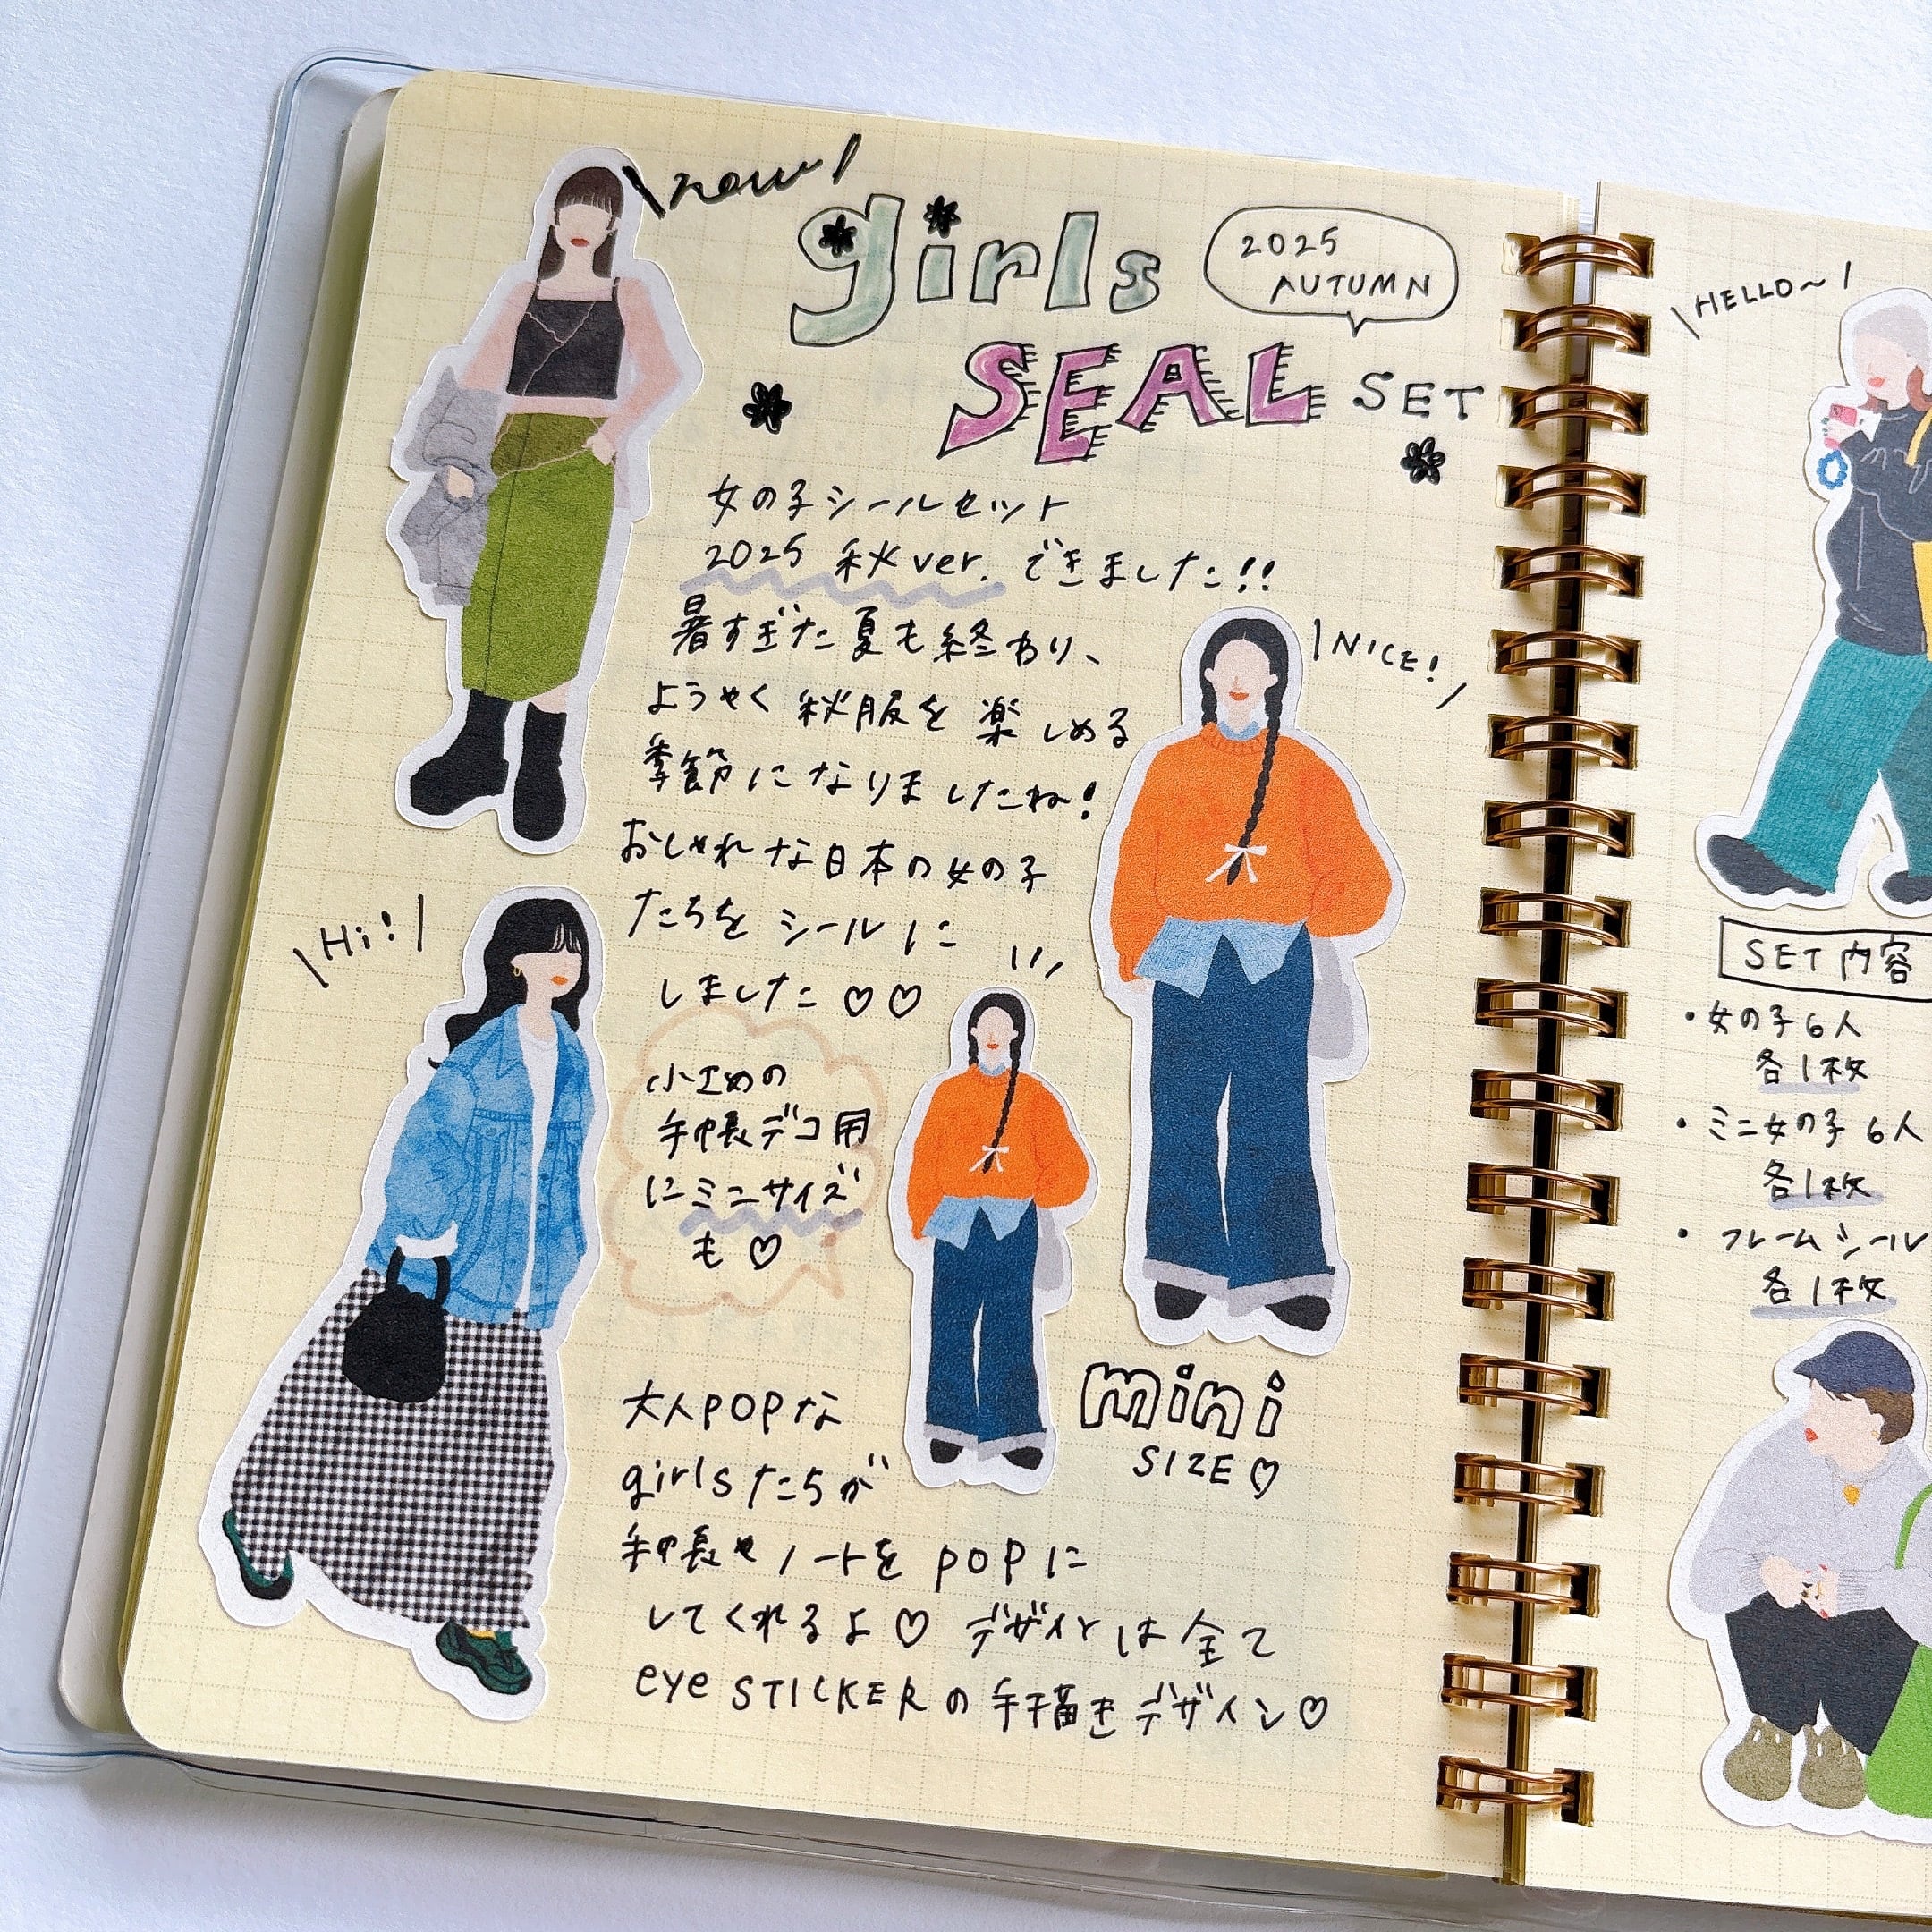 \new/
girls
2025
AUTUMN
SEAL SET
女の子シールセット
2025 秋ver. できました!!
暑すぎた夏も終わり、
ようやく 秋服を 楽しめる
季節になりましたね!
おしゃれな日本の女の子
たちを シールに
しました♡♡
\NICE!/
\Hi!/
小さめの
手帳デコ用
にミニサイズ
も♡
mini
SIZE♡
大人POPな
girlsたちが
手帳やノートを POPに
してくれるよ♡ デザインは全て
eye STICKERの手描きデザイン♡
\HELLO~/
SET内容
・女の子6人
各1枚
・ミニ女の子6人
各1枚
・フレームシール
各1枚